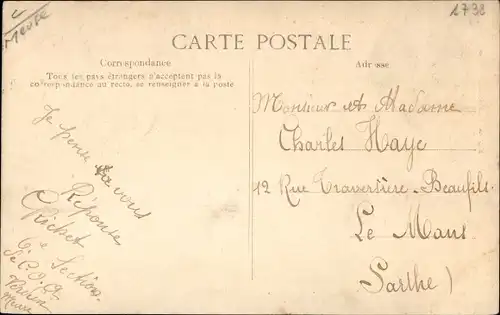 Meuse
1798
CARTE POSTALE
Correspondance
Tous les pays étrangers n'acceptent pas la
correspondance au recto, se renseigner à la poste
Adresse
Je pense à vous
Réponse
Richet
6e Section
de C.O.A
Verdun
Meuse
Monsieur et Madame
Charles Haye
12 Rue Traversière-Beaufils
Le Mans
Sarthe)